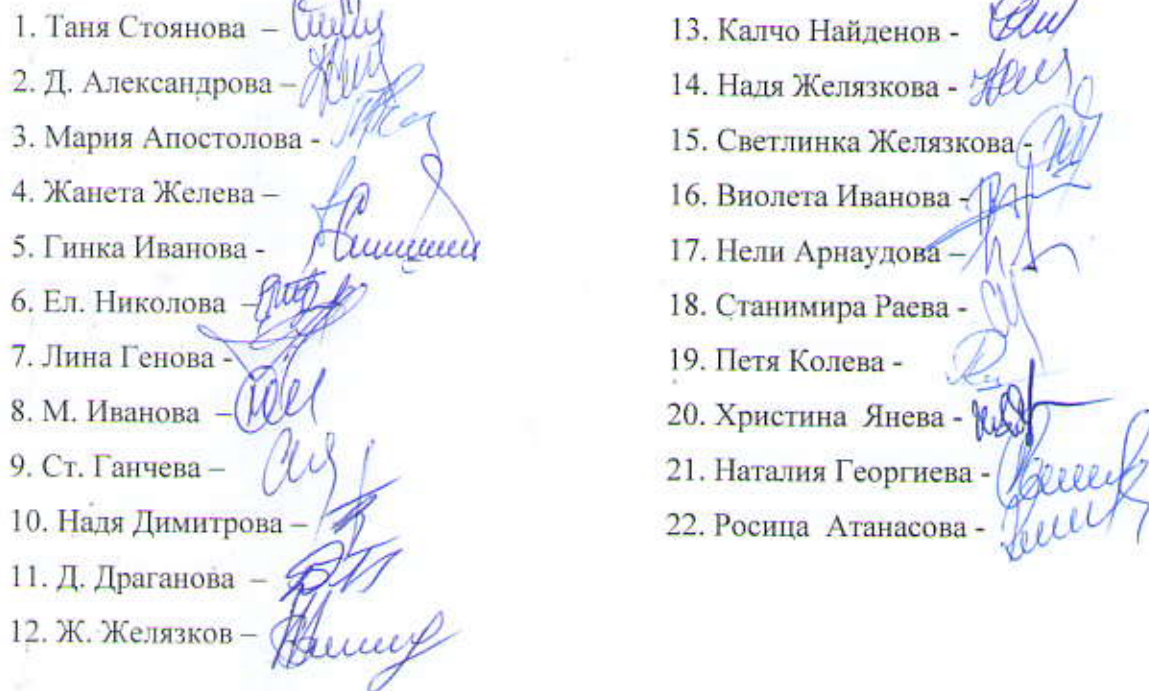 1. Таня Стоянова –
2. Д. Александрова –
3. Мария Апостолова -
4. Жанета Желева –
5. Гинка Иванова -
6. Ел. Николова –
7. Лина Генова -
8. М. Иванова –
9. Ст. Ганчева –
10. Надя Димитрова –
11. Д. Драганова –
12. Ж. Желязков –
13. Калчо Найденов -
14. Надя Желязкова -
15. Светлинка Желязкова -
16. Виолета Иванова -
17. Нели Арнаудова –
18. Станимира Раева -
19. Петя Колева -
20. Христина Янева -
21. Наталия Георгиева -
22. Росица Атанасова -